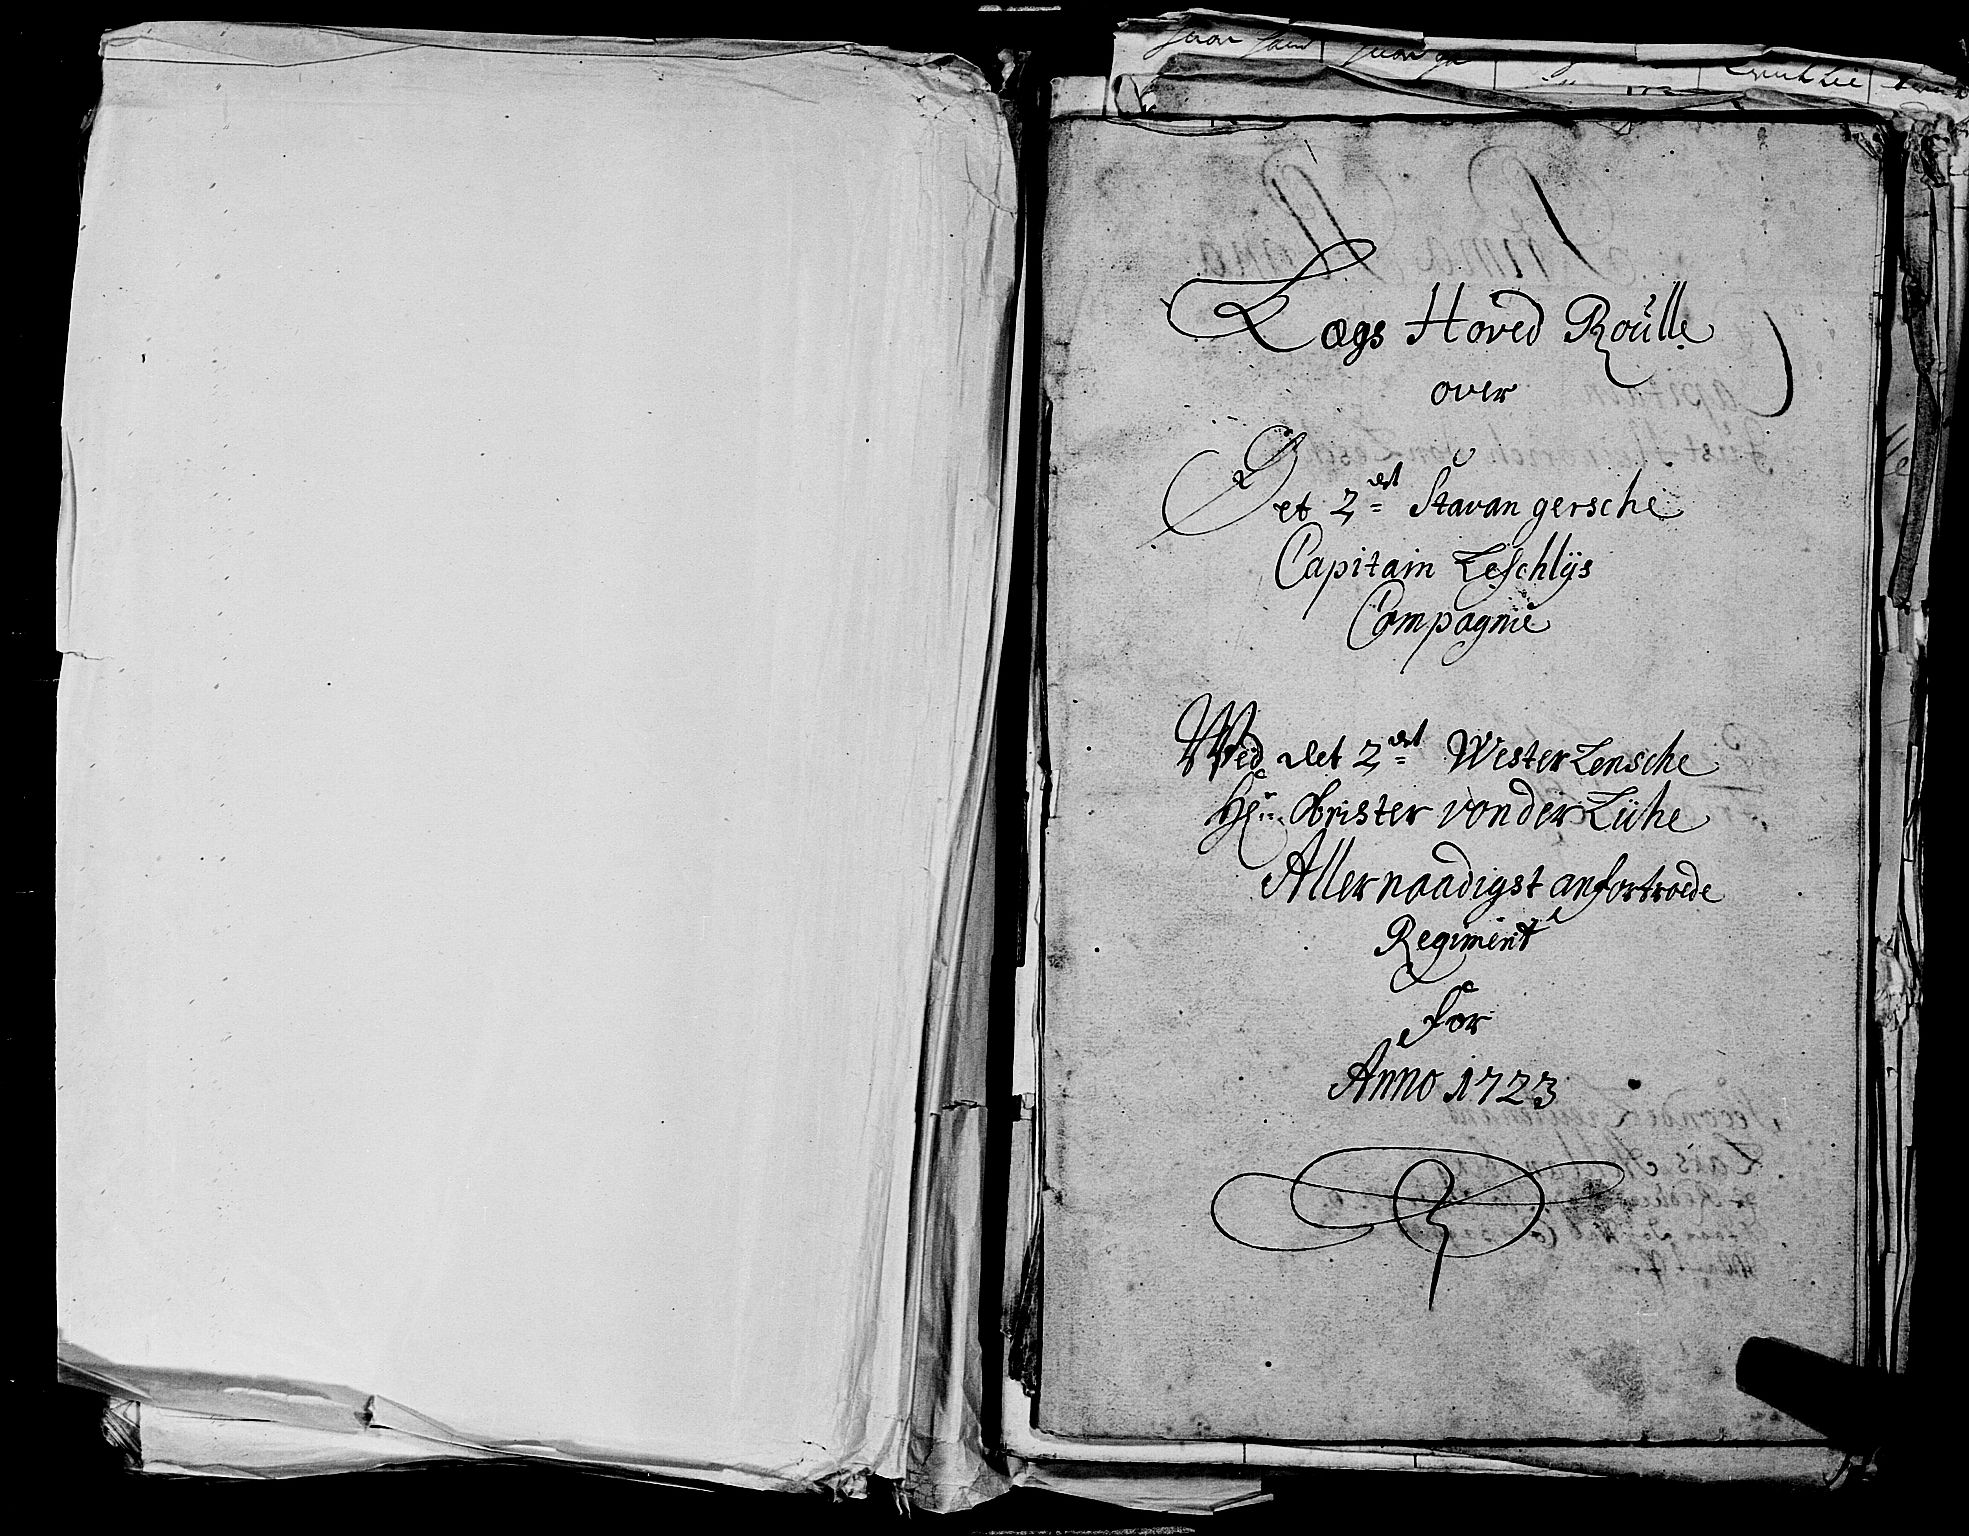 Lægs Hoved Roulle
over
Det 2det Stavangersche
Capitain Leschlÿs
Compagnie
Wed det 2det WesterLensche
Hr: Obrister von der Lühe
Allernaadigst anfortroede
Regiment
for
Anno 1723